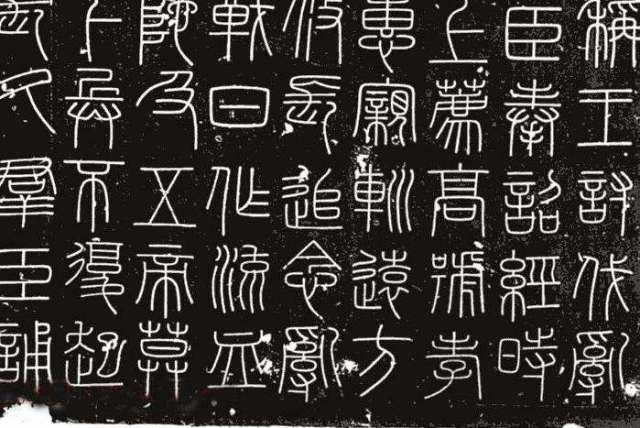 稱王討伐亂
臣奉詔經時
上薦高號孝
惠親巡遠方
攸長追念亂
戰日作流血
陀及五帝莫
下兵不復起
長久群臣誦